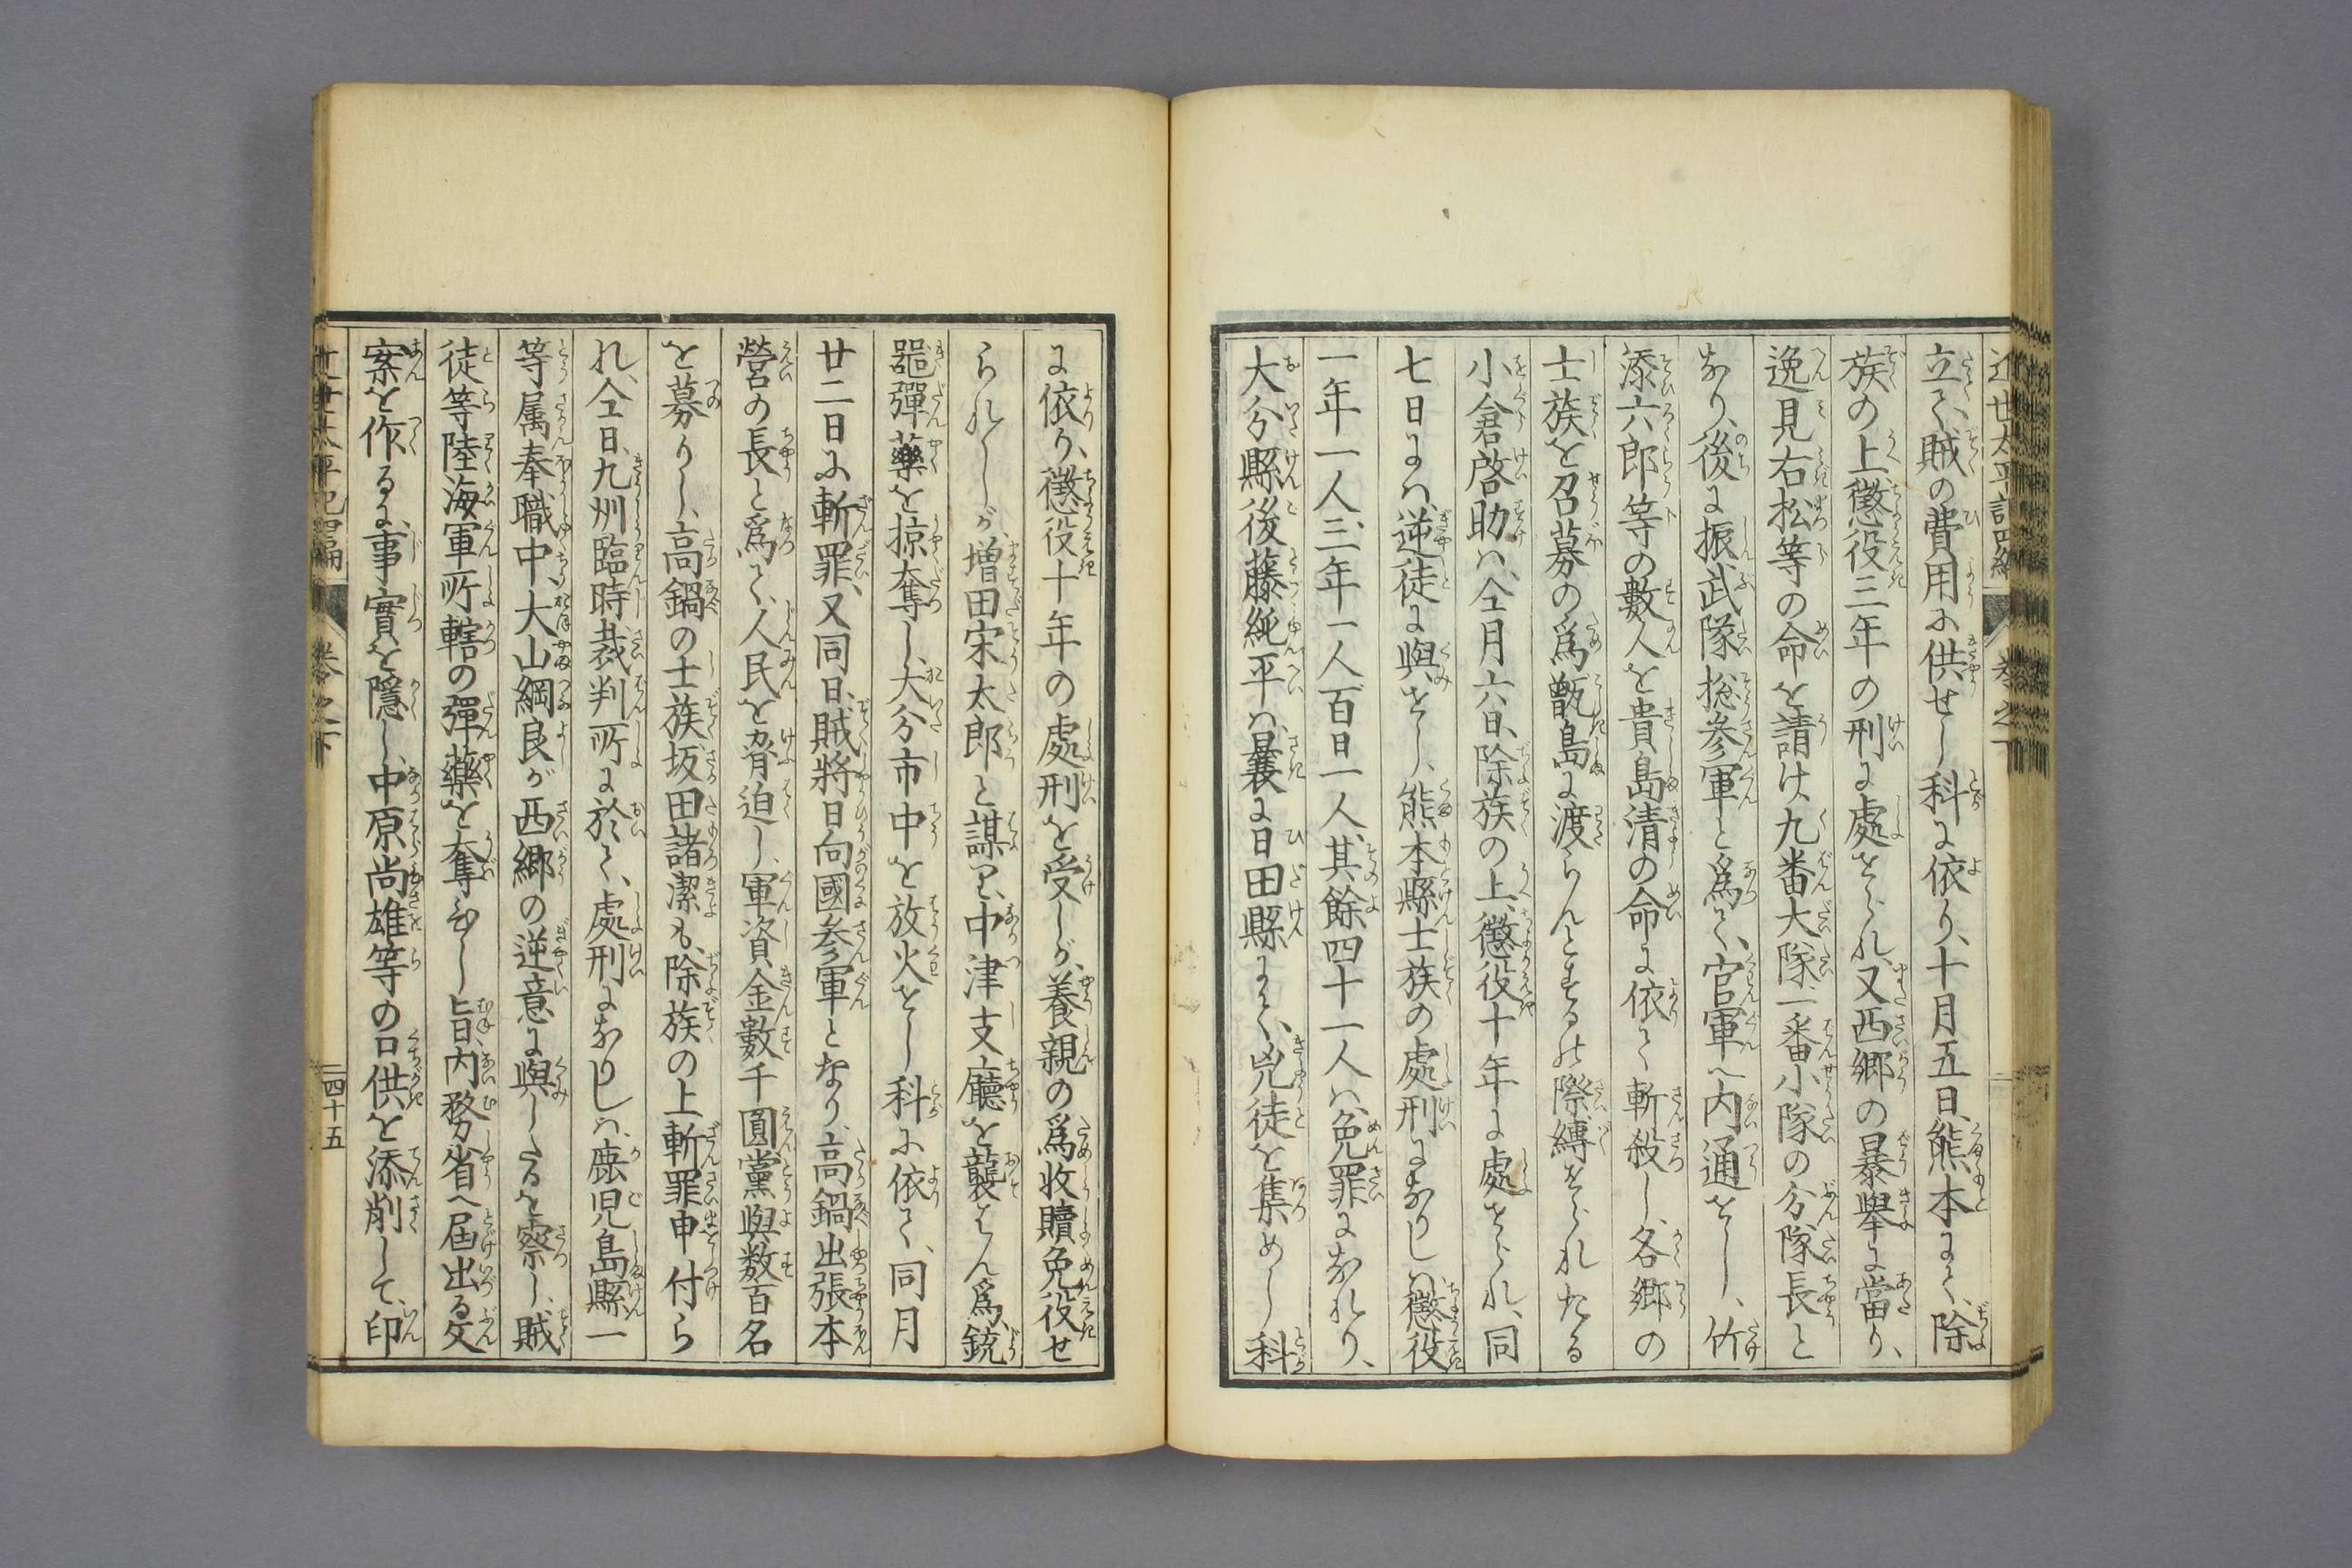 近世太平記四編 卷之下
立て、賊の費用に供せし科に依り、十月五日、熊本にて、除
族の上、懲役三年の刑に處せられ、又西郷の暴擧に當り、
逸見右松等の命を請け、九番大隊一番小隊の分隊長と
なり、後に振武隊総參軍と爲て、官軍へ内通せし、竹
添六郎等の數人を貴島清の命に依て斬殺し、各郷の
士族を召募の爲、甑島に渡らんとするの際、縛せられたる
小倉啓助は、仝月六日、除族の上、懲役十年に處せられ、同
七日には、逆徒に與せし、熊本縣士族の處刑になりしは、懲役
一年一人、三年一人、百日一人、其餘四十一人は、免罪になれり、
大分縣後藤純平は、曩に日田縣にて、兇徒を集めし科
に依り、懲役十年の處刑を受しが、養親の爲收贖免役せ
られしが、増田宋太郎と謀り、中津支廳を襲はん爲、銃
器彈藥を掠奪し、大分市中を放火せし科に依て、同月
廿二日に斬罪、又同日、賊將日向國參軍となり、高鍋出張本
營の長と爲て、人民を脅迫し、軍資金數千圓黨與数百名
を募りし、高鍋の士族坂田諸潔も、除族の上斬罪申付ら
れ、仝日、九州臨時裁判所に於て、處刑になりしは、鹿児島縣一
等属奉職中、大山綱良が西郷の逆意に與したるを察し、賊
徒等陸海軍所轄の彈藥を奪ひし旨、内務省へ届出る文
案を作るに、事實を隱し、中原尚雄等の口供を添削して、印
近世太平記四編 卷之下 二四十五